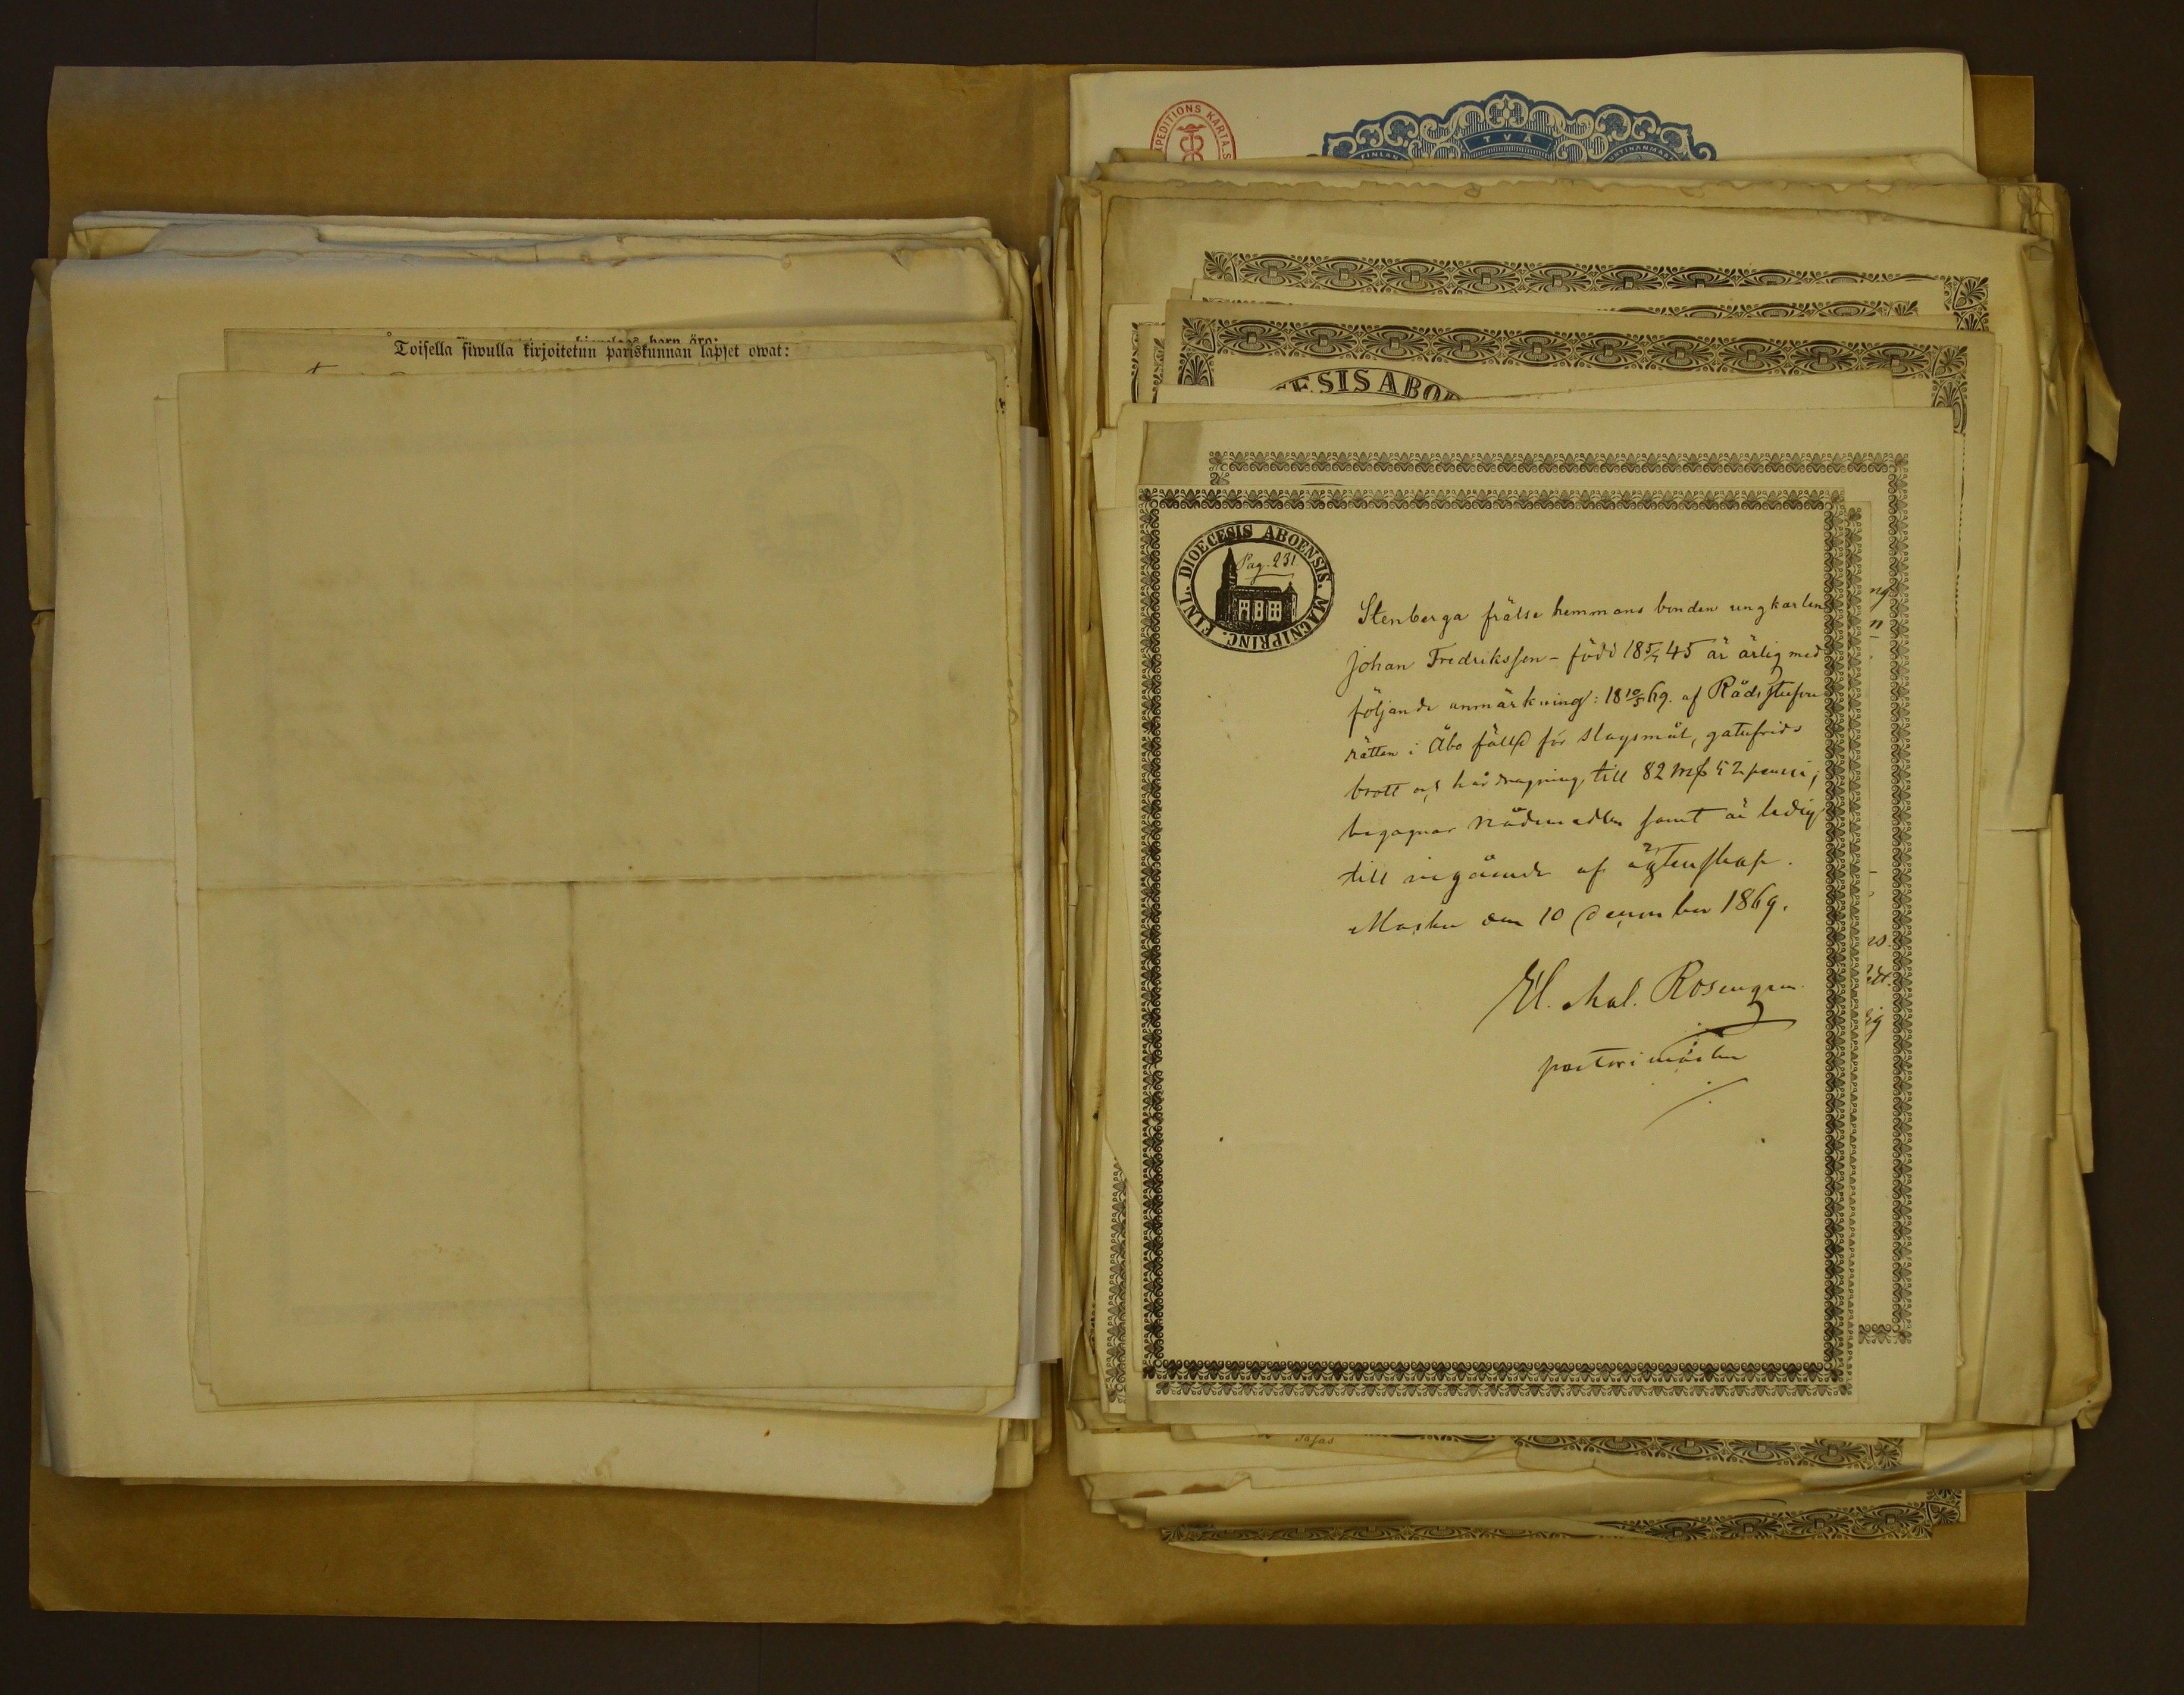 Toisella siwulla kirjoitetun pariskunnan lapset owat:
EXPEDITIONS KARTA
TVÅ
FINLAN
ESIS ABO
DIOECESIS ABOENSIS. MAGNI PRINC. FINL.
Pag. 231.
Stenberga frälse hemmans bonden ungkarlen
Johan Fredriksson - född 18 5/7 45 är ärlig med
följande anmärkning: 18 10/5 69. af Rådstufvu
rätten i Åbo fälld för slagsmål, gatufrids
brott och hårdragning till 82 mk 52 penni;
begagnar nådemedlen samt är ledig
till ingående af ägtenskap.
Masku den 10 December 1869.
Rosengren
pastor i